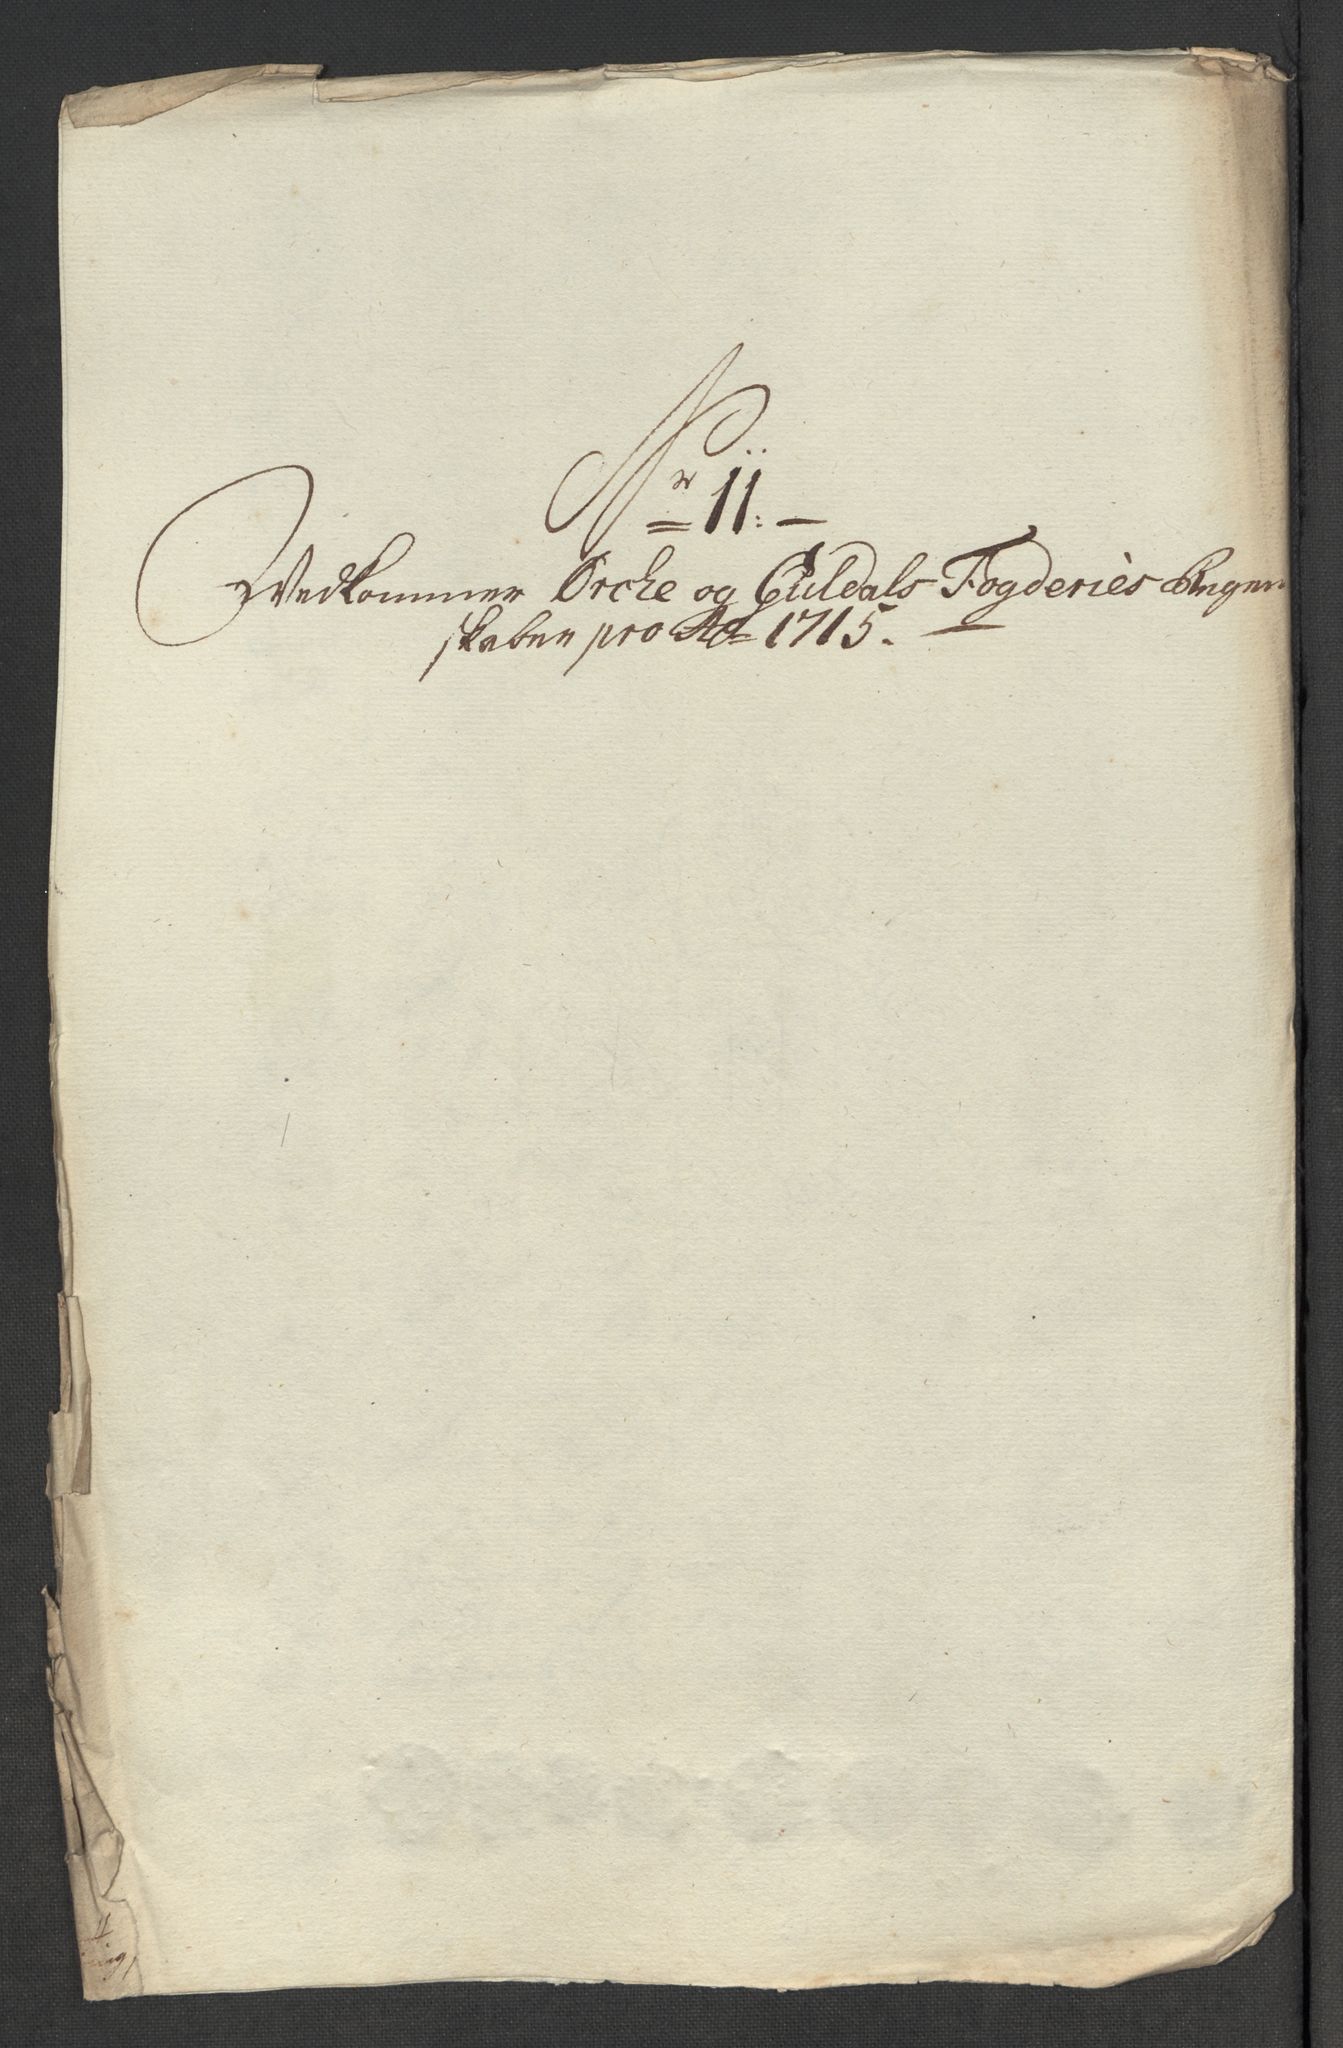 Nr 11:
Vedkommer Orche og Guldals Fogderies Regen-
skaber pro Ao 1715.